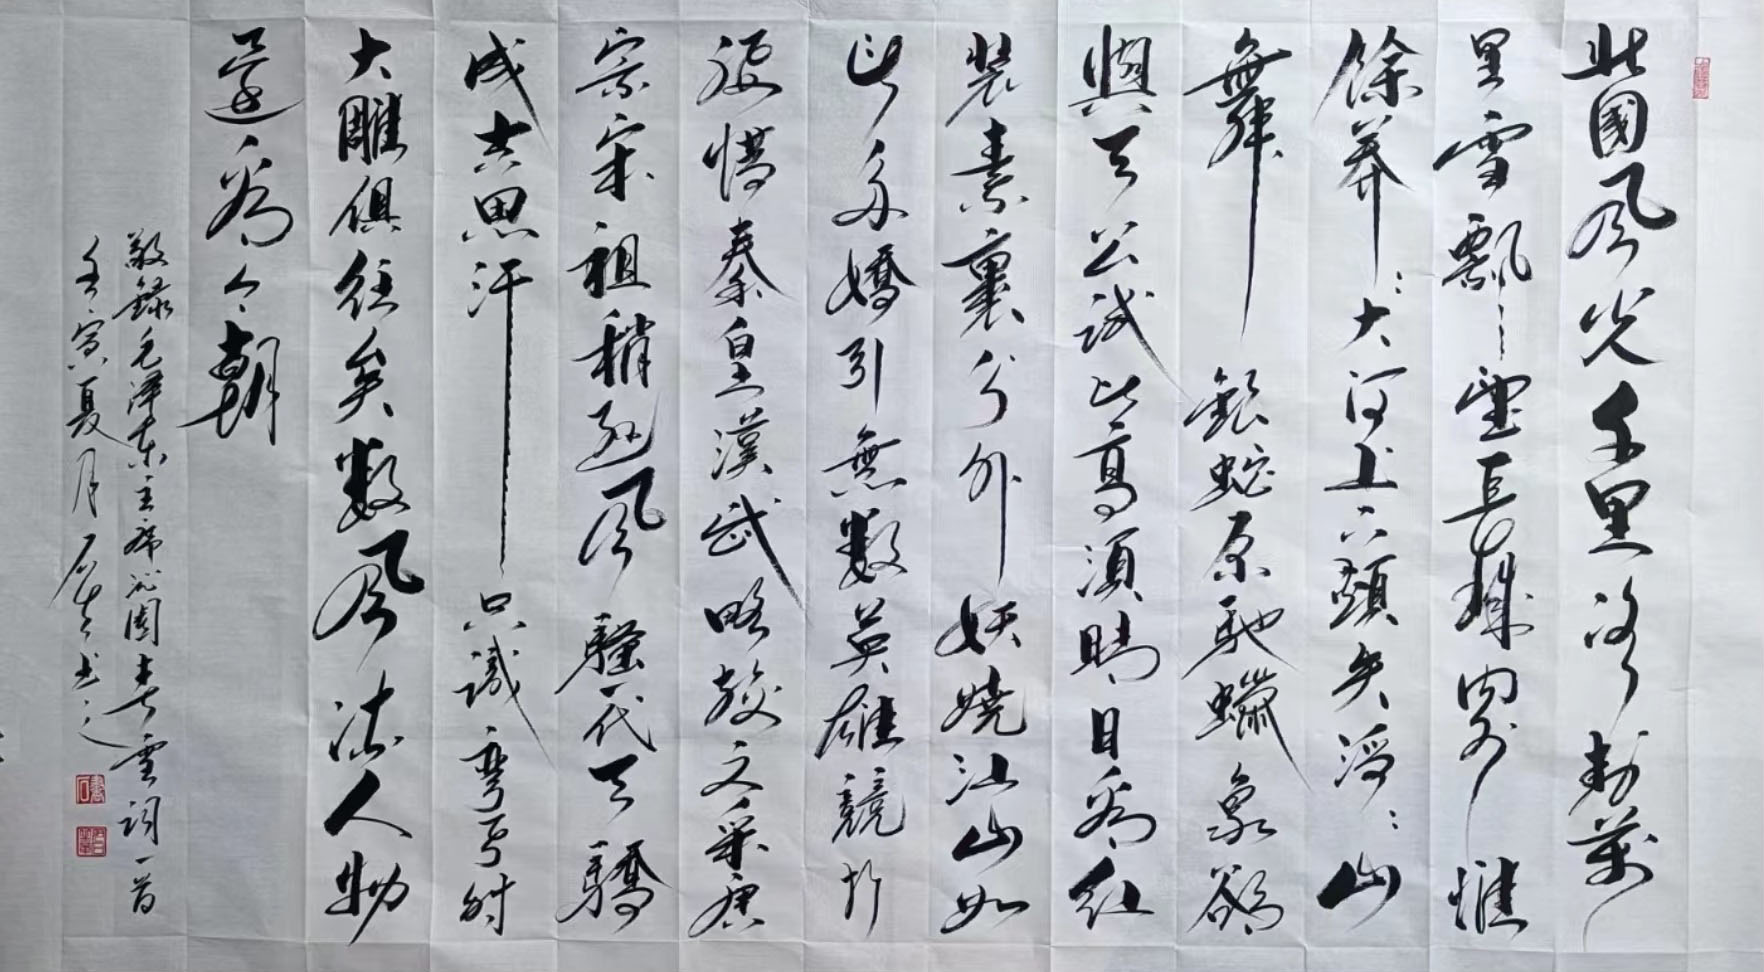 北國風光千里冰封萬
里雪飄望長城內外惟
餘莽：大河上下頓失滔：山
舞銀蛇原馳蠟象欲
與天公試比高須晴日看紅
裝素裹分外妖嬈江山如
此多嬌引無數英雄競折
腰惜秦皇漢武略較文采唐
宗宋祖稍遜風騷一代天驕
成吉思汗只識彎弓射
大雕俱往矣數風流人物
還看今朝
敬錄毛泽东主席沁園春雪詞一首
壬寅夏月石書之